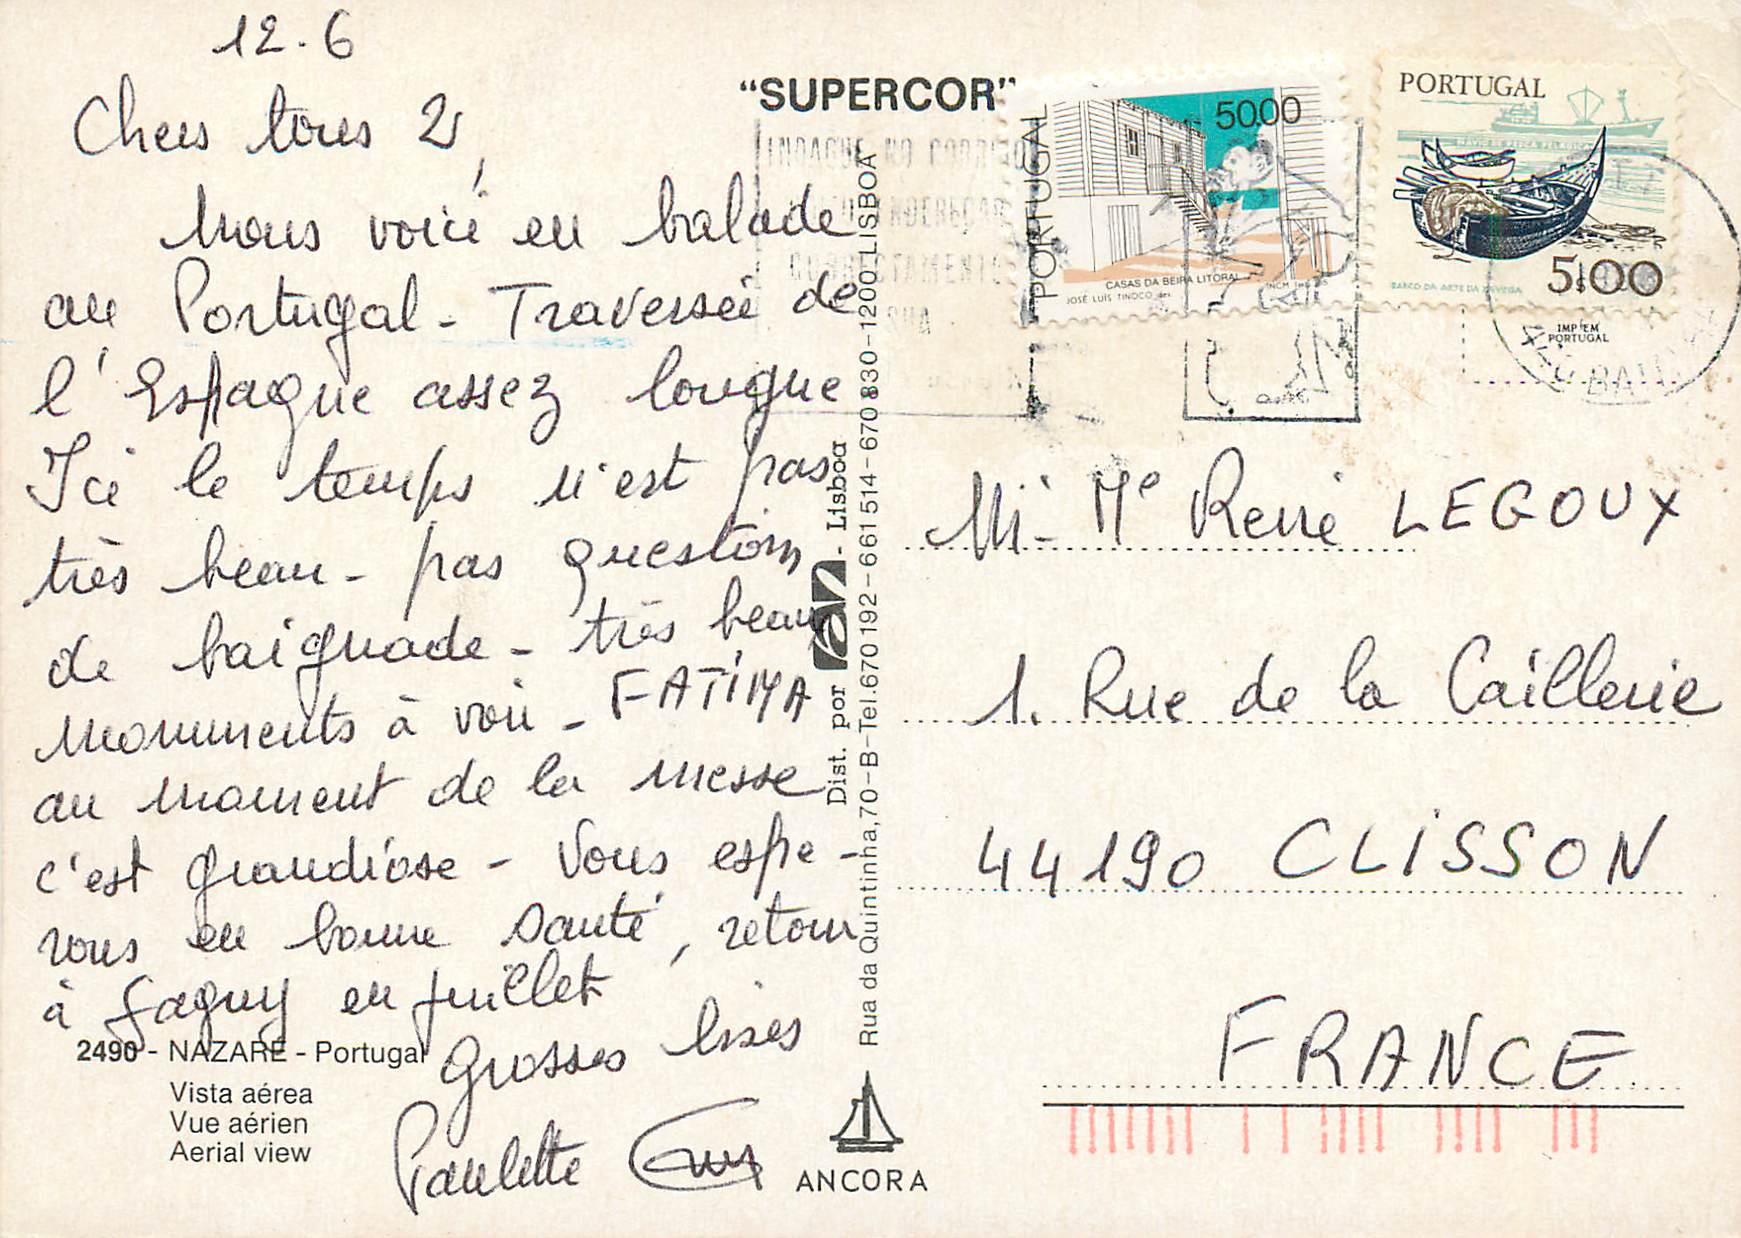 12.6
Chers tous 2,
Nous voici en balade
au Portugal - Traversée de
l'Espagne assez longue
Ici le temps n'est pas
très beau - pas question
de baignade - très beaux
monuments à voir - FATIMA
au moment de la messe
c'est grandiose - Vous espé-
rons en bonne santé, retour
à en juillet
Grosses bises
Paulette
2490 - NAZARÉ - Portugal
Vista aérea
Vue aérien
Aerial view
"SUPERCOR"
Dist. por - Lisboa
Rua da Quintinha, 70-B-Tel. 670192-661514-670830-1200 LISBOA
ANCORA
INDAGUE NO CORREIO
ENDEREÇAR
CORRECTAMENTE
PORTUGAL
5000
CASAS DA BEIRA LITORAL
JOSÉ LUIS TINOCO des.
INCM
PORTUGAL
NAVIO DE PESCA PELÁGICA
5$00
BARCO DA ARTE DA XÁVEGA
IMP EM
PORTUGAL
Mr Me René LEGOUX
1. Rue de la Caillerie
44190 CLISSON
FRANCE